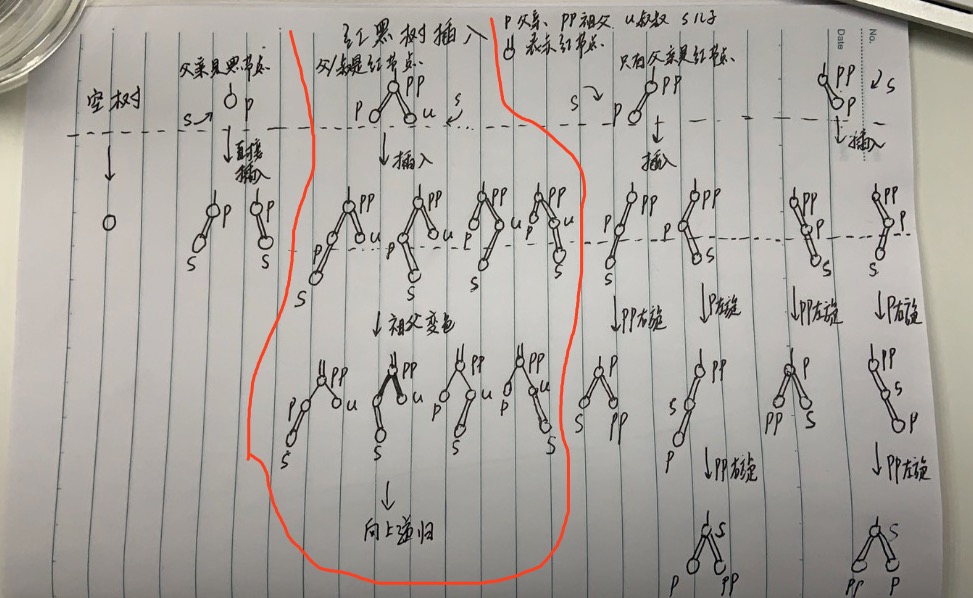 红黑树插入
P 父亲、PP 祖父 u 叔叔 S 儿子
表示红节点.
No.
Date
空树
父亲是黑节点.
P
S
直接
插入
P
S
P
S
父/叔是红节点.
PP
P
u
s
插入
PP
P
u
S
PP
P
u
S
PP
P
u
S
PP
P
u
S
祖父变色
PP
P
u
S
PP
u
S
PP
P
u
S
PP
P
u
S
向上递归
只有父亲是红节点.
PP
S
P
插入
PP
P
S
PP
P
S
PP右旋
P左旋
P
S
PP
PP
S
P
PP右旋
S
P
PP
PP
P
S
插入
PP
P
S
PP
P
S
PP左旋
P右旋
P
PP
S
PP
S
P
PP左旋
S
PP
P